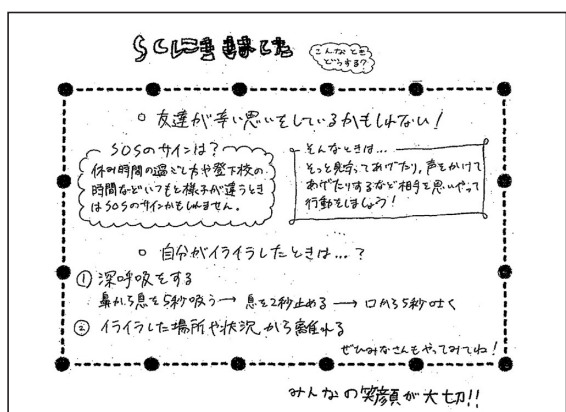 こんなとき
どうする?
○ 友達が辛い思いをしているかもしれない!
SOSのサインは?
休み時間の過ごし方や登下校の
時間などいつもと様子が違うとき
はSOSのサインかもしれません。
そんなときは…
そっと見守ってあげたり,声をかけて
あげたりするなど相手を思いやって
行動をしましょう!
○ 自分がイライラしたときは…?
① 深呼吸をする
鼻から息を5秒吸う→息を2秒止める→口から5秒吐く
② イライラした場所や状況から離れる
ぜひみなさんもやってみてね!
みんなの笑顔が大切!!